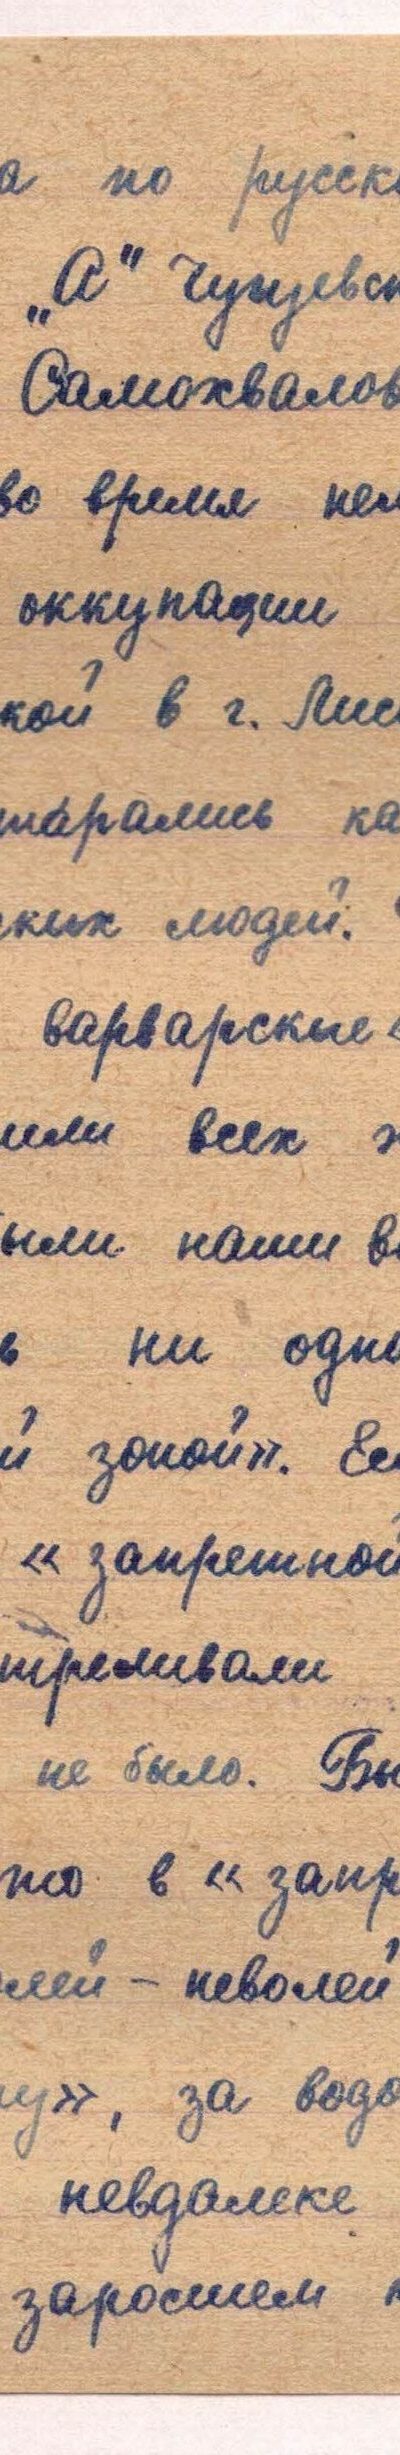 а по русско
„А" Чугуевск
Самохвалов
во время нем
оккупации
кой в г. Лис
тарались ка
ских людей.
варварские «
или всех ж
были наши в
ь ни одно
й зоной». Ес
« запретной
треливали
не было. Бы
то в « запр
олей - неволей
ну», за водо
невдалеке
заросшем